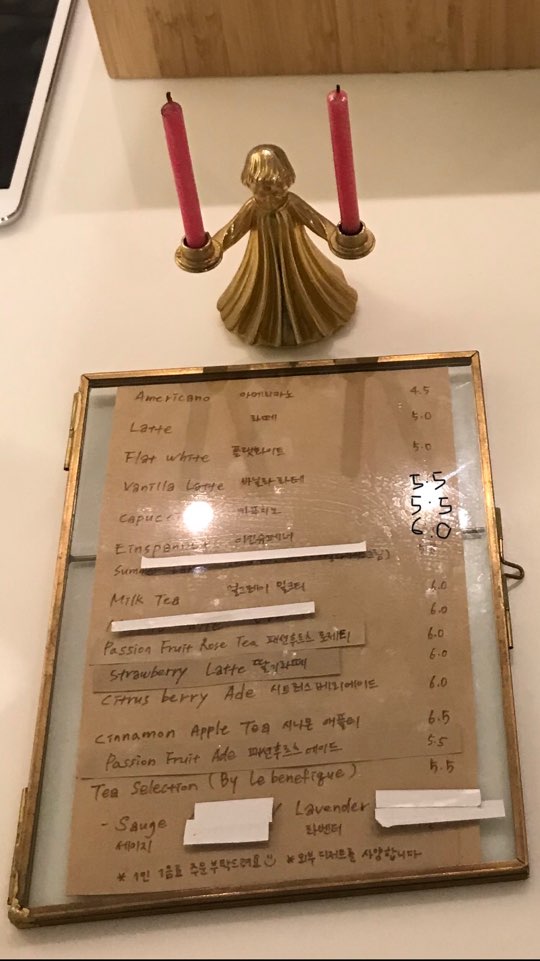 Americano 아메리카노 4.5
Latte 라떼 5.0
Flat white 플랫화이트 5.0
Vanilla Latte 바닐라 라떼 5.5
Capuc 카푸치노 5.5
Einspanner 아인슈페너 6.0
Milk Tea 밀크티 6.0
6.0
Passion Fruit Rose Tea 패션후르츠 로제티 6.0
Strawberry Latte 딸기라떼 6.0
Citrus berry Ade 시트러스베리에이드 6.0
Cinnamon Apple Tea 시나몬 애플티 6.5
Passion Fruit Ade 패션후르츠에이드 5.5
Tea Selection (By Le benefique) 5.5
- Sauge / Lavender
세이지 라벤더
* 1인 1음료 주문부탁드려요 * 외부 디저트를 사양합니다